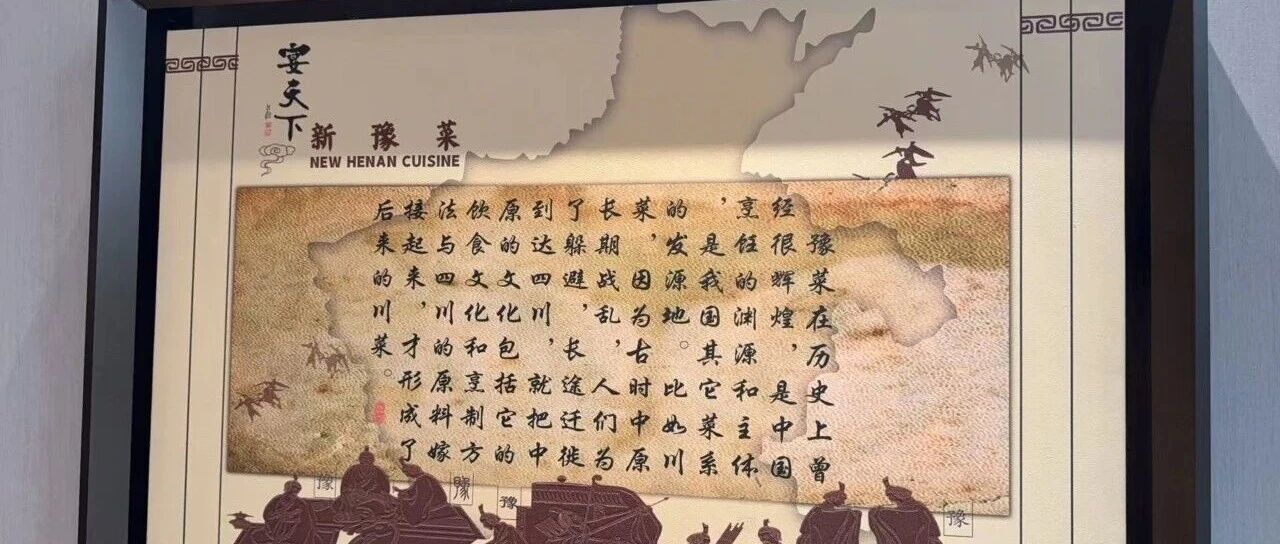 宴天下
新豫菜
NEW HENAN CUISINE
豫菜在历史上曾
经很辉煌，是中国
烹饪的渊源和主体
，是我国其它菜系
的发源地。比如川
菜，因为古时中原
长期战乱，人们为
了躲避，长途迁徙
到达四川，就把中
原的文化包括它的
饮食文化和烹制方
法与四川的原料嫁
接起来，才形成了
后来的川菜。
豫
豫
豫
豫